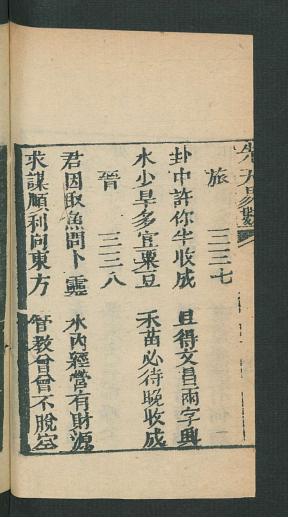 先天易數
旅 三三七
卦中許你半收成 且得文昌兩字興
水少旱多宜粟豆 禾苗必待晚收成
晉 三三八
君因取魚問卜靈 水內經營有財源
求謀順利向東方 管教曾曾不脫空